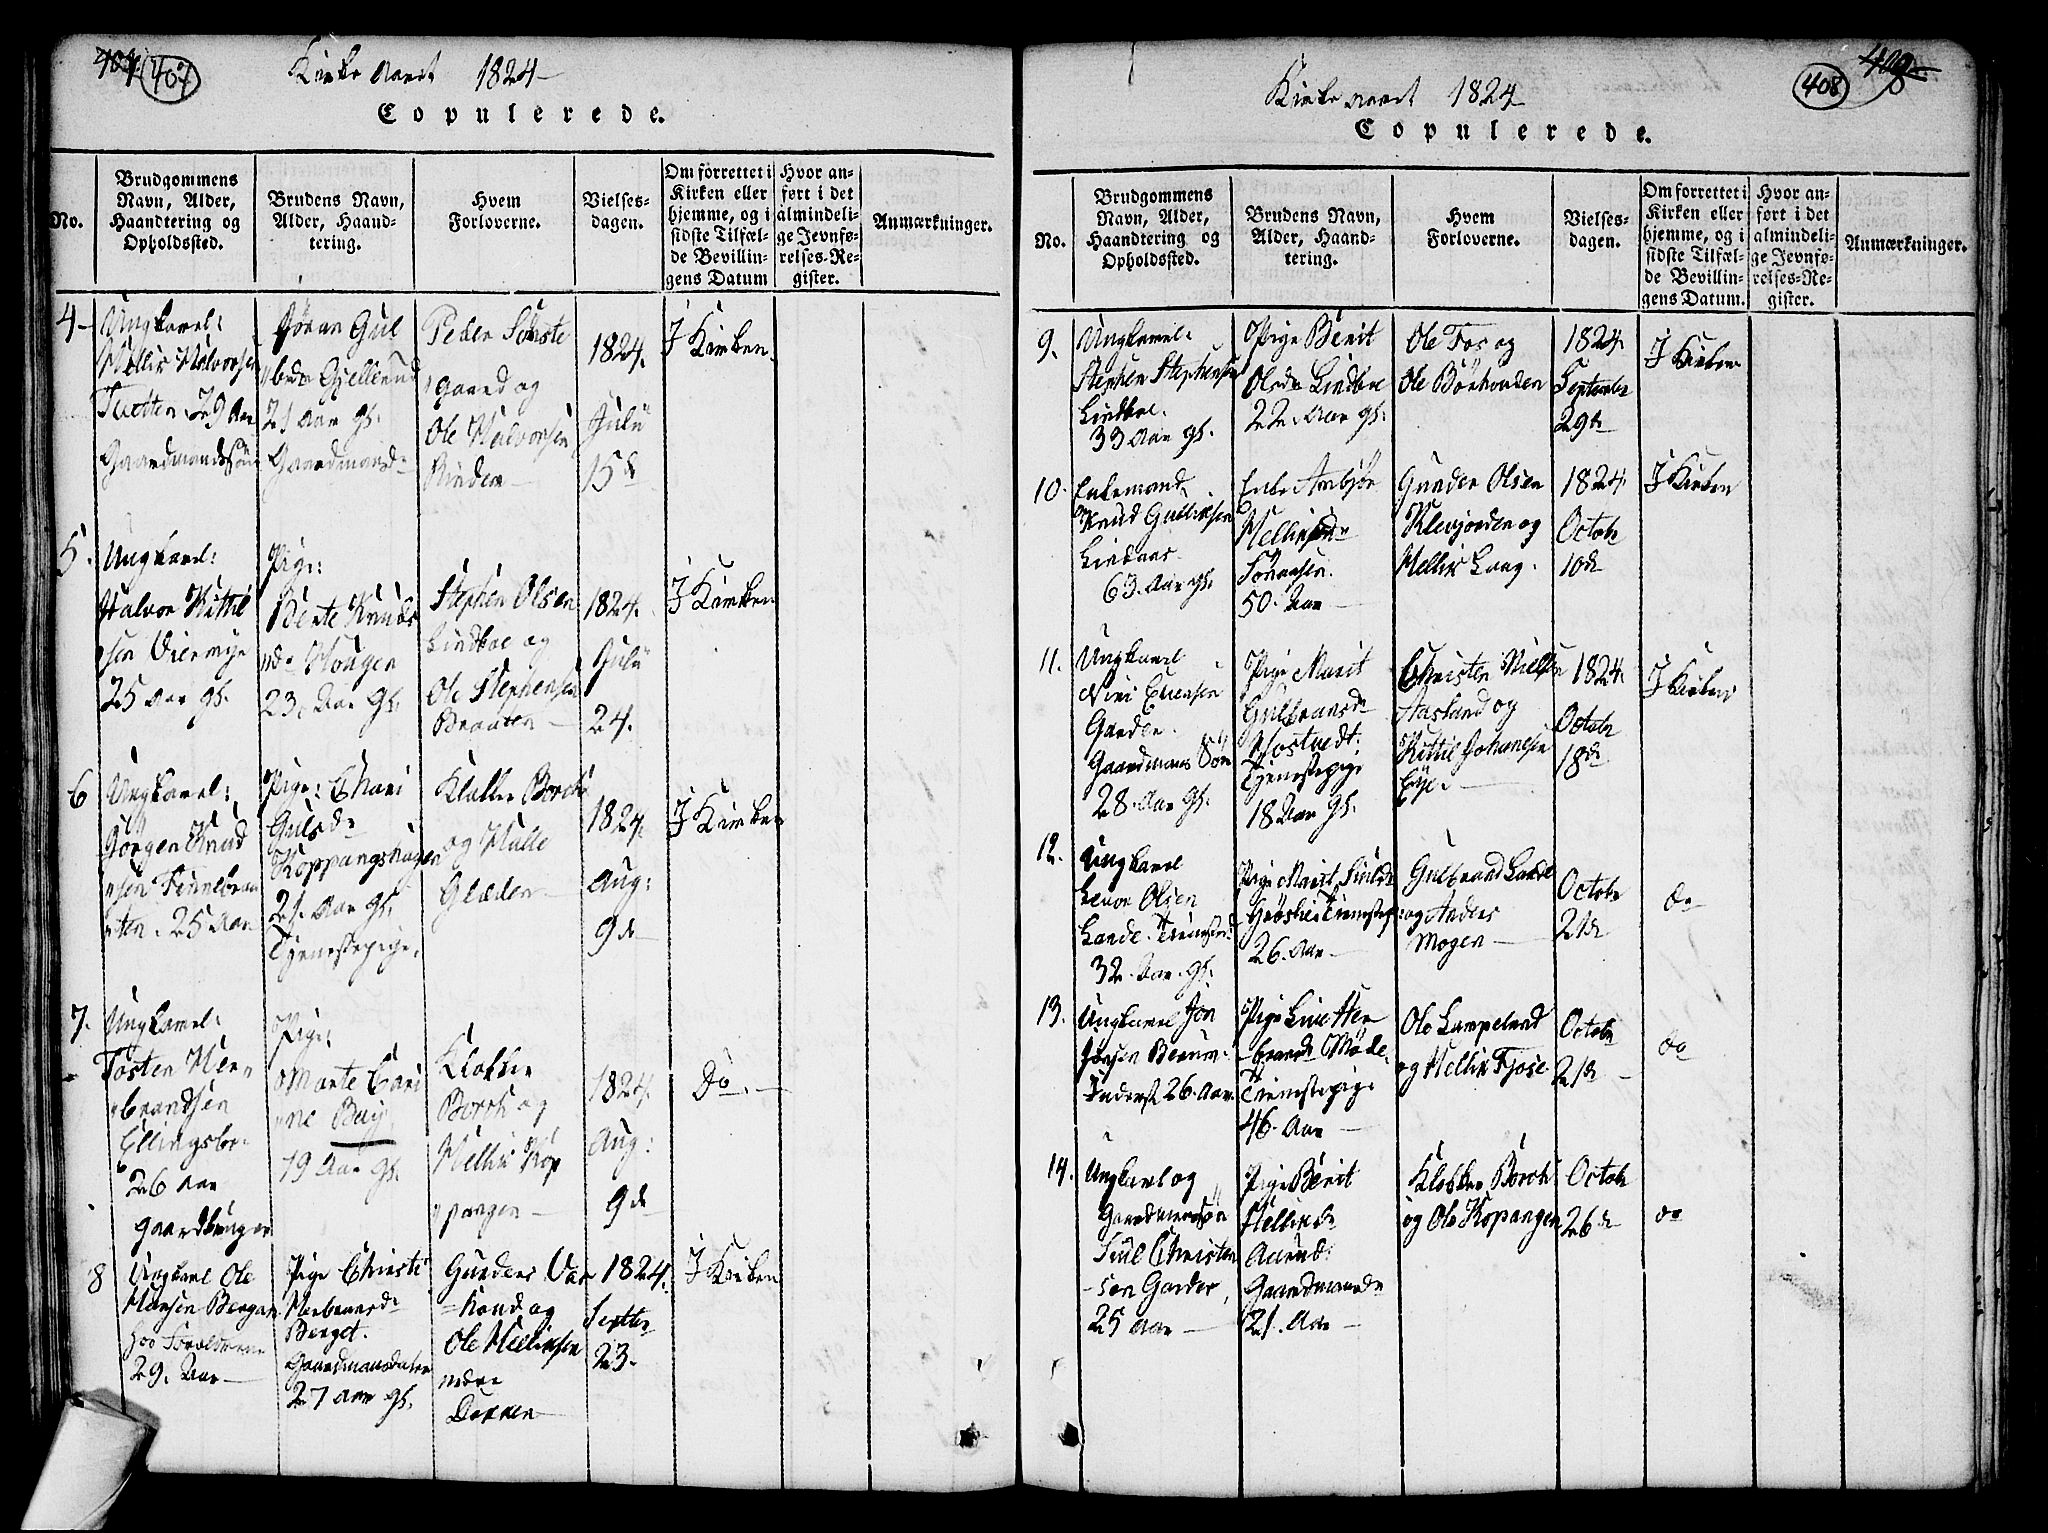 407
Kirke Aaret 1824
Copulerede.
No.
Brudgommens
Navn, Alder,
Haandtering og
Opholdssted.
Brudens Navn,
Alder, Haand-
tering.
Hvem
Forloverne.
Vielses-
dagen.
Om forrettet i
Kirken eller
hjemme, og i
sidste Tilfæl-
de Bevillin-
gens Datum
Hvor an-
ført i det
almindeli-
ge Jevnfø-
relses-Re-
gister.
Anmærkninger.
4
Ungkarl:
Hellik Halvorsen
29 Aar
Gaardmandssøn
Jøran Gul
21 Aar gl.
Gaardmands
Peder
gaard og
Ole Halvorsen
Rinden
1824.
Julii
15d
I Kirken.
5.
Ungkarl:
Halvor Kittil
sen
25 Aar gl.
Pige:
Bente Knuds
Hougen
23. Aar gl.
Stephen Olsen
Lindboe og
Ole Stephensen
Braaten
1824.
Julii
24.
I Kirken
6
Ungkarl:
Jörgen Knud
sen
ten. 25 Aar
Pige: Chari
Gulsd
Koppangshagen
21. Aar gl.
Tjenestepige.
Klokker Borch
og Halle
Glæden
1824.
Aug:
9d
I Kirken
7.
Ungkarl:
Tosten Her
brandsen
Ellingsbr
26 Aar
gaardbruger
Pige:
Marte Cari
ne Bay
19 Aar gl.
Klokker
Borch og
Hellik Kop
pangen
1824.
Aug:
9d
Do.
8
Ungkarl Ole
Hansen Bergan
hos Forældrene
29. Aar
Pige Christi
Herbrands
Berget.
Gaardmandsdatter
27 Aar gl.
Gunder
og
Ole Helliksen
nedre
Dokken
1824.
Septbr
23.
I Kirken
408
Kirke Aaret 1824
Copulerede.
No.
Brudgommens
Navn, Alder,
Haandtering og
Opholdssted.
Brudens Navn,
Alder, Haand-
tering.
Hvem
Forloverne.
Vielses-
dagen.
Om forrettet i
Kirken eller
hjemme, og i
sidste Tilfæl-
de Bevillin-
gens Datum.
Hvor an-
ført i det
almindeli-
ge Jevnfø-
relses-Re-
gister.
Anmærkninger.
9.
Ungkarl:
Stephen Stephensen
Lindboe.
33 Aar gl.
Pige Berit
Olsdr Lindboe
22. Aar gl.
Ole Fos og
Ole Börtnesden
1824.
September
29d
I Kirken
10.
Enkemand
Knud Gulliksen
Lindaas
63. Aar gl.
Enke Ambjör
Helliksd
50. Aar
Gunder Olsen
Klevjorden og
Hellik Laag.
1824.
Octobr
10d
I Kirken
11.
Ungkarl
Niri Evensen
Garden.
Gaardmans Sön
28. Aar gl.
Pige Marit
Gulbransd
Hostvedt:
Tjenestepige
18 Aar gl.
Christen Nielsen
Aasland og
Kittil Johannesen
Eye.
1824.
Octobr
18d
I Kirken
12.
Ungkarl
Levor Olsen
Lande.
32. Aar. gl.
Pige Marit
26. Aar
Gulbrand Lande
og Anders
Mogen
Octobr
21d
do
13.
Ungkarl Jon
Jonsen
Inderst 26. Aar.
Pige Live Her
brandsd
Tienestepige
46. Aar
Ole Lampeland
og Hellik Fjose.
Octobr
21d
do
14.
Ungkarl og
Gaardmandssön
Juul Christen
sen Garder,
25 Aar
Pige Berit
Helliksd
Aasland
Gaardmands
21. Aar
Klokker Borch
og Ole Kopangen
Octobr
26d
do